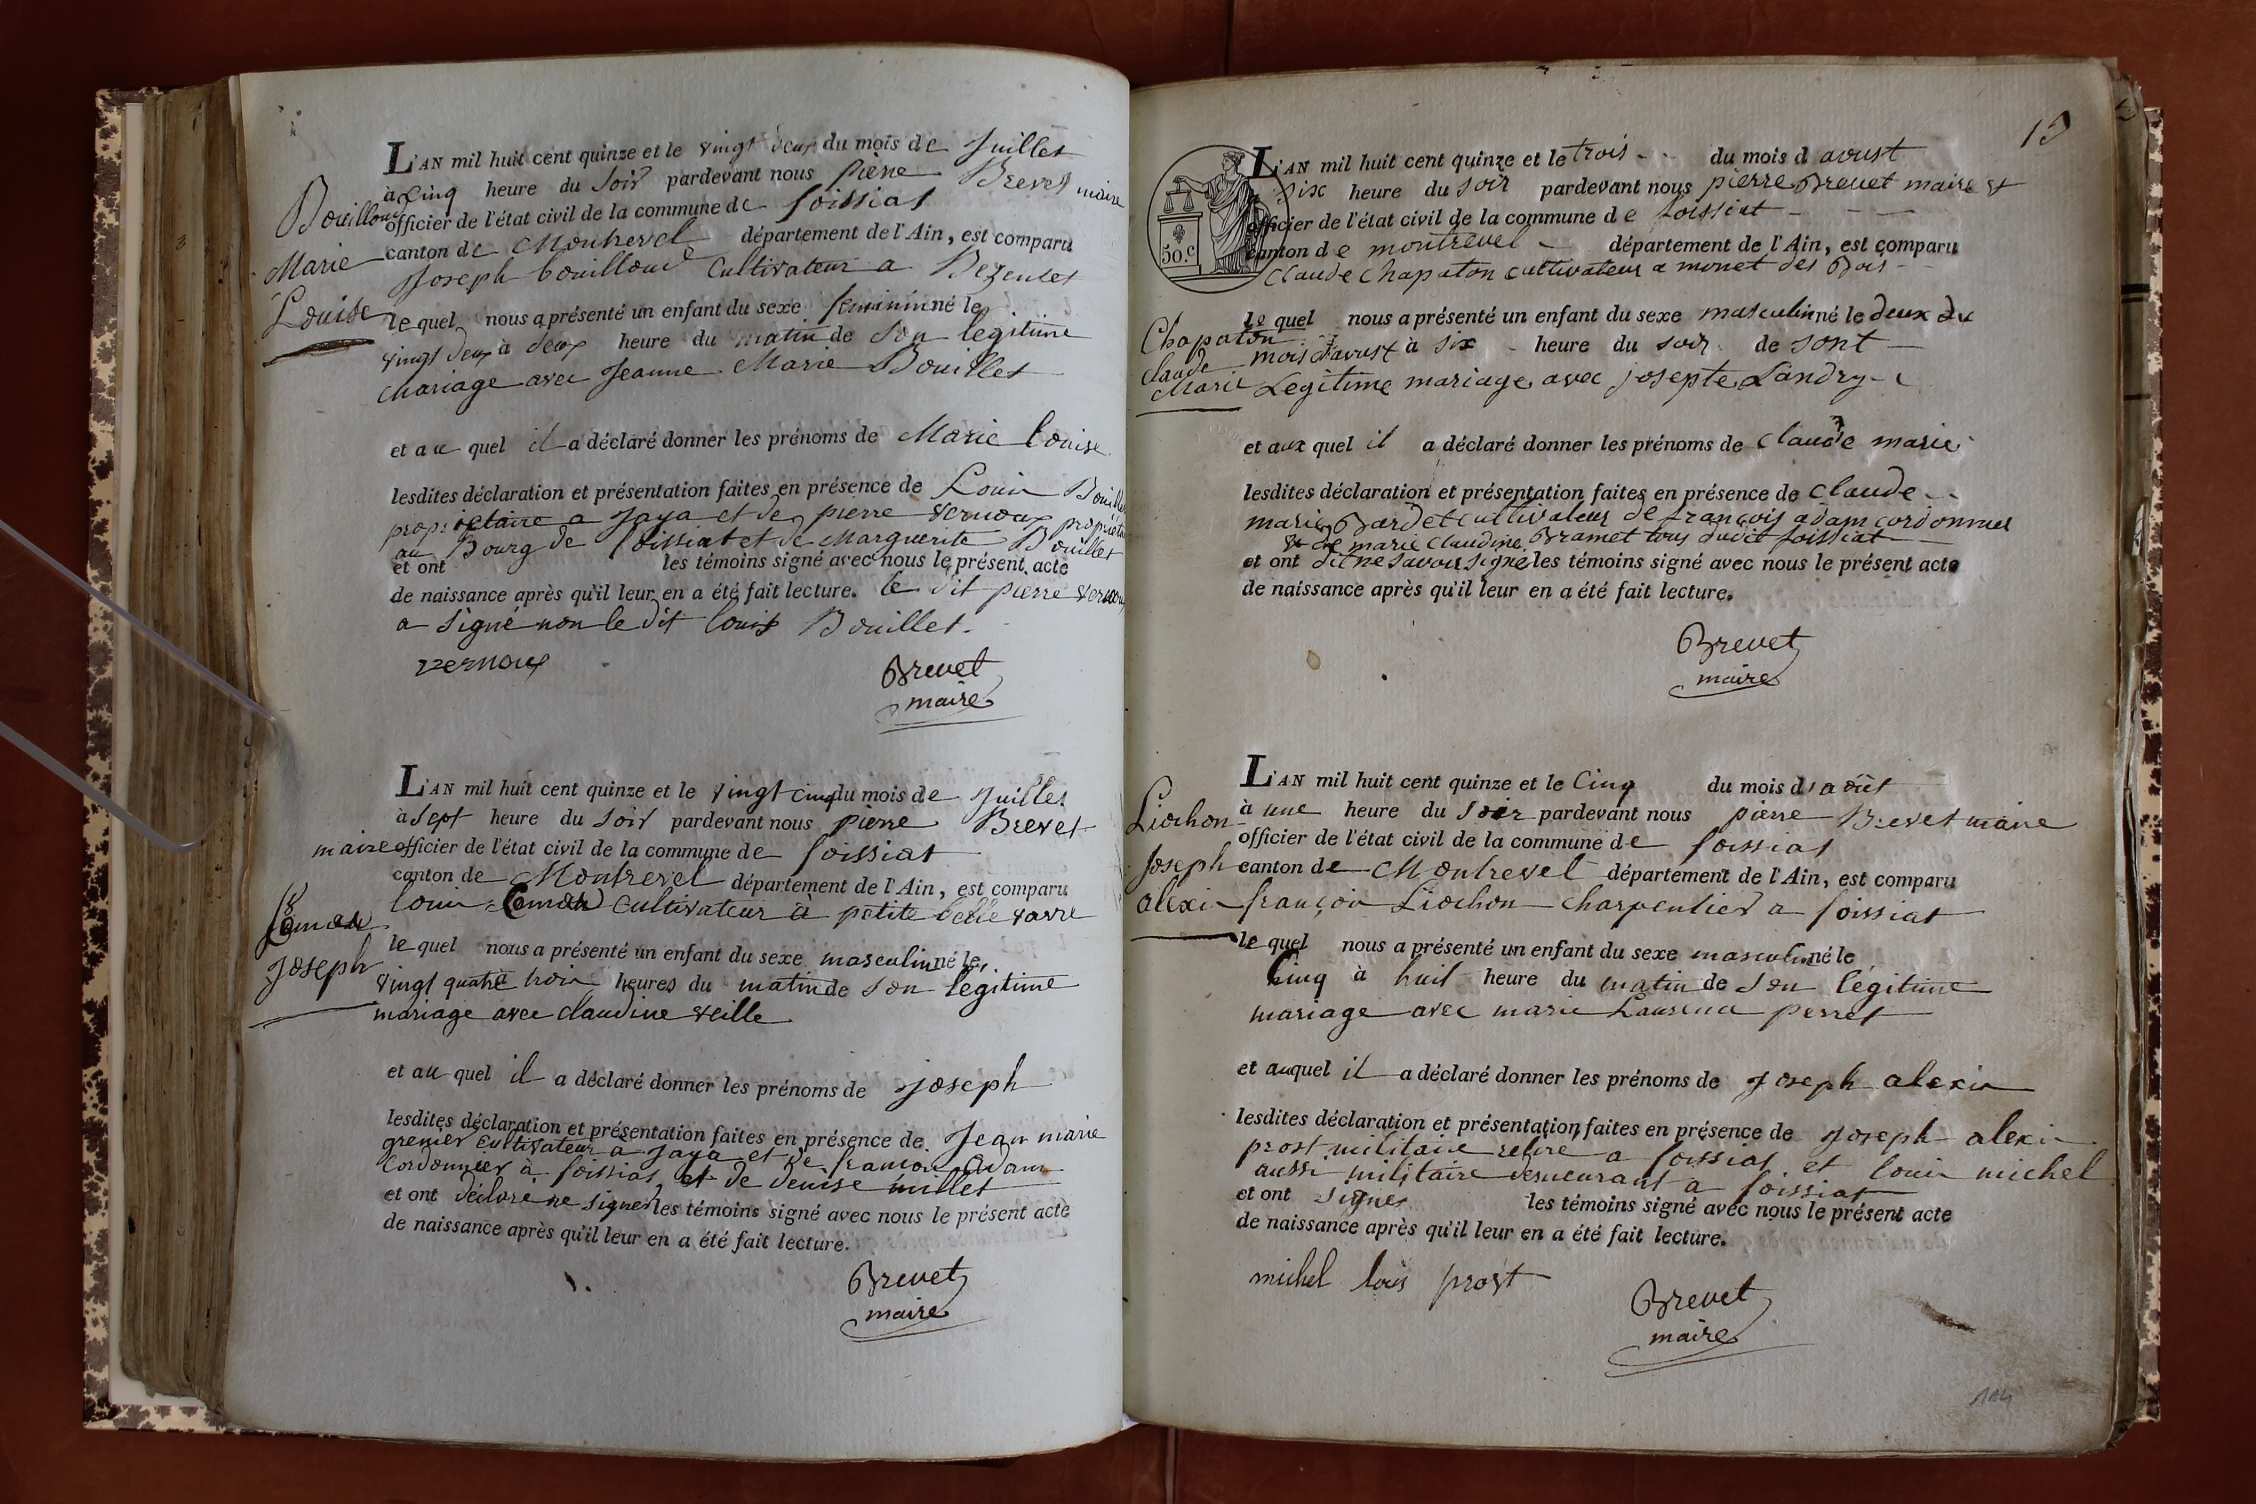 L'AN mil huit cent quinze et le vingt deux du mois de Juillet
à Cinq heure du soir pardevant nous pierre Brevet maire
officier de l'état civil de la commune de foissiat
canton de Montrevel département de l'Ain, est comparu
Joseph bouilloud Cultivateur a Bezentet
Marie
Louise
le quel nous a présenté un enfant du sexe feminin né le
vingt deux à deux heure du matin de son legitime
Mariage avec Jeanne Marie Bouillet
et au quel il a déclaré donner les prénoms de Marie louise
lesdites déclaration et présentation faites en présence de Louis
proprietaire a Jaya et de pierre vernoux
au Bourg de foissiat et de Marguerite Bouillet
et ont les témoins signé avec nous le présent acte
de naissance après qu'il leur en a été fait lecture. le dit pierre vernoux
a signé non le dit louis Bouillet.
vernoux
Brevet
maire
L'AN mil huit cent quinze et le vingt cinq du mois de Juillet
à sept heure du soir pardevant nous pierre Brevet
maire officier de l'état civil de la commune de foissiat
canton de Montrevel département de l'Ain, est comparu
louis cultivateur à petite
Joseph
le quel nous a présenté un enfant du sexe masculin né le
vingt quatre trois heures du matin de son legitime
mariage avec claudine veille
et au quel il a déclaré donner les prénoms de joseph
lesdites déclaration et présentation faites en présence de Jean marie
grenier cultivateur a Jaya et de francois Adam
Cordonnier à foissiat, et de denise millet
et ont déclaré ne signer les témoins signé avec nous le présent acte
de naissance après qu'il leur en a été fait lecture.
Brevet
maire
L'AN mil huit cent quinze et le trois du mois d avust
six heure du soir pardevant nous pierre Brevet maire et
officier de l'état civil de la commune de foissiat
canton de montrevel département de l'Ain, est comparu
50.c
Claude Chapaton cultivateur a monet des Bois
Chapaton
claude
Marie
le quel nous a présenté un enfant du sexe masculin né le deux du
mois d'avust à six heure du soir de sont
Legitime mariage avec josepte Landry
et aux quel il a déclaré donner les prénoms de claude marie
lesdites déclaration et présentation faites en présence de claude
marie Bardet cultivateur de françois adam cordonnier
& de marie claudine Bramet tous dudit foissiat
et ont dit ne savoir signer les témoins signé avec nous le présent acte
de naissance après qu'il leur en a été fait lecture.
Brevet
maire
L'AN mil huit cent quinze et le Cinq du mois d'août
à une heure du soir pardevant nous pierre Brevet maire
officier de l'état civil de la commune de foissiat
canton de Montrevel département de l'Ain, est comparu
françois Liochon charpentier a foissiat
Liochon
Joseph
alexis
le quel nous a présenté un enfant du sexe masculin né le
Cinq à huit heure du matin de son légitime
mariage avec marie Laurence perret
et auquel il a déclaré donner les prénoms de Joseph alexis
lesdites déclaration et présentation faites en présence de Joseph alexis
prost militaire retiré a foissiat et louis michel
aussi militaire demeurant à foissiat
et ont signes les témoins signé avec nous le présent acte
de naissance après qu'il leur en a été fait lecture.
michel loüs prost
Brevet
maire